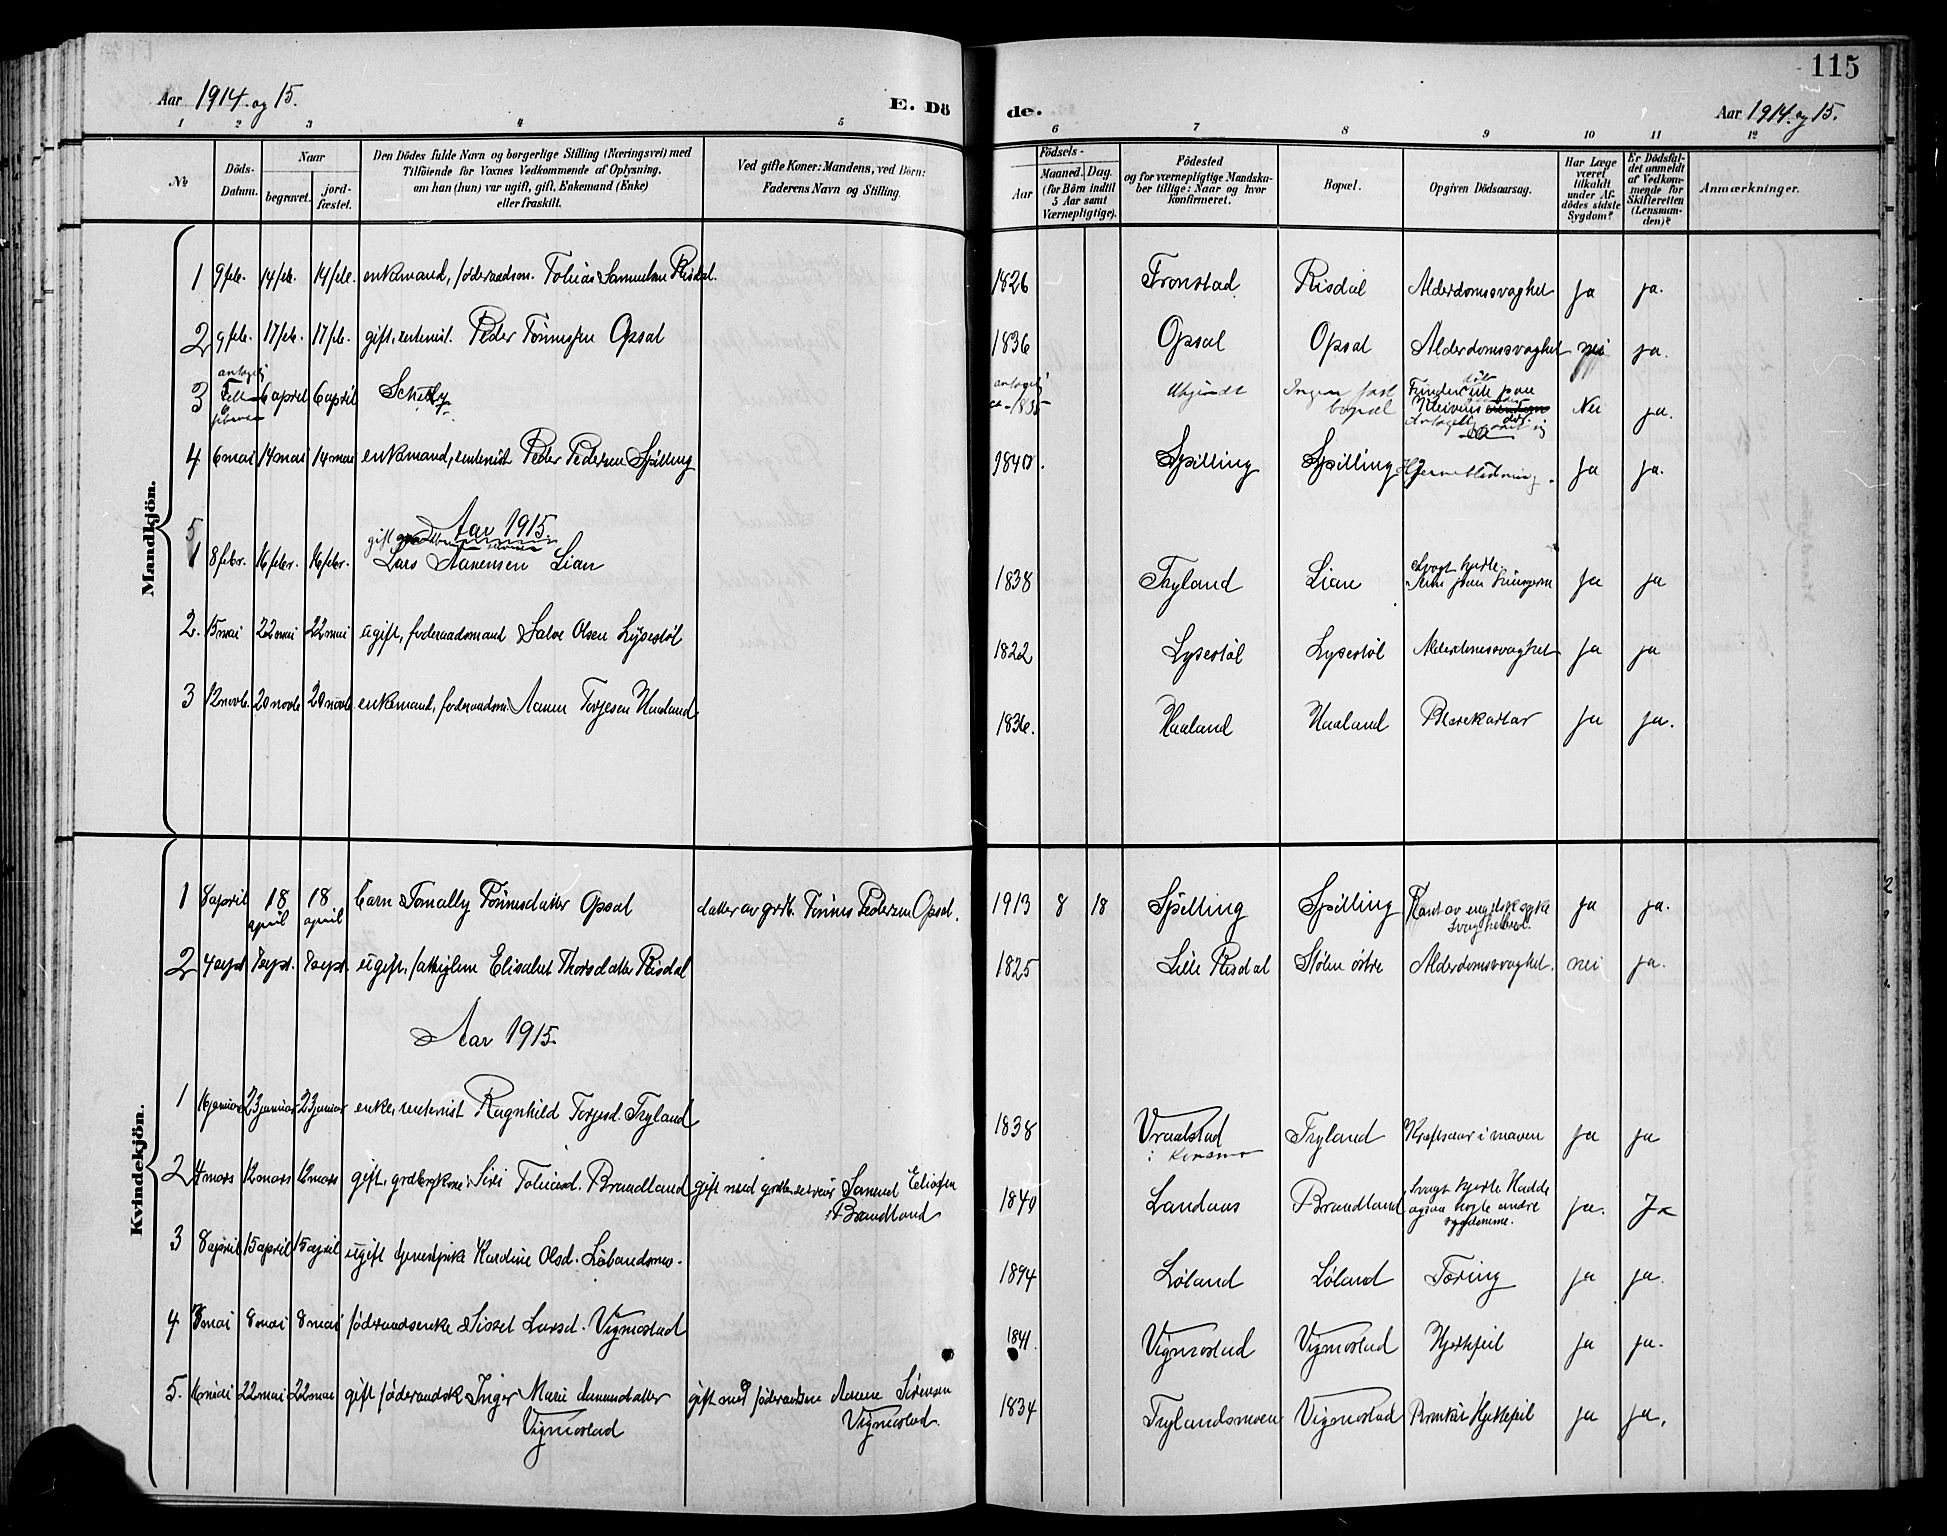 115
Aar 1914 og 15.
E. Dö
de.
Aar 1914 og 15.
1 2 3 4 5
6 7 8 9 10 11 12
No
Döds-
Datum.
Naar
begravet.
jord-
fæstet.
Den Dödes fulde Navn og borgerlige Stilling (Næringsvei) med
Tilföiende for Voxnes Vedkommende af Oplysning,
om han (hun) var ugift, gift, Enkemand (Enke)
eller fraskilt.
Ved gifte Koner: Mandens, ved Börn:
Faderens Navn og Stilling.
Födsels-
Aar
Maaned. Dag.
(for Börn indtil
5 Aar samt
Værnepligtige).
Födested
og for værnepligtige Mandska-
ber tillige: Naar og hvor
konfirmeret.
Bopæl.
Opgiven Dödsaarsag.
Har Læge
været
tilkaldt
under Af-
dödes sidste
Sygdom?
Er Dödsfal-
det anmeldt
af Vedkom-
mende for
Skifteretten
(Lensman-
den)?
Anmærkninger.
Mandkjön.
1 9 feb. 14 feb. 14 feb. enkemand, föderaadsm. Tobias Samuelsen Risdal. 1826 Tronstad Risdal Alderdomssvaghet ja ja.
2 9 feb. 17 feb. 17 feb. gift, rentenist. Peder Tönnessen Opsal 1836 Opsal Opsal Alderdomssvaghet nei ja.
antagelig
3 6 april 6 april antagelig ca. Ingen fast
bopæl Nei ja.
4 6 mai 14 mai 14 mai enkemand, rentenist Peder Pedersen Spilling 1840. Spilling Spilling Hjerneblödning. ja ja.
5 Aar 1915.
gift
1 8 febr. 16 febr. 16 febr. Lars Aanensen Lian 1838 Tryland Lian Svagt hjerte. ja ja
2. 15 mai 22 mai 22 mai ugift, föderaadsmand Salve Olsen Lysestöl 1822 Lysestöl Lysestöl Alderdomssvaghet ja ja
3 12 novb. 20 novb 20 novb enkemand, föderaadsm. Aanen Torjesen Haaland. 1836. Haaland Haaland Blærekatar ja ja.
Kvindekjön.
1 8 april 18 april 18 april barn Tomally Tönnesdatter Opsal datter av grdb. Tönnes Pedersen Opsal. 1913 8 18 Spilling Spilling Kant av engelsk syke
Svaghet ja ja.
2 4 sept 8 sept. 8 sept. ugift, fattiglem Elisabet Thorsdatter Risdal 1825 Lille Risdal Stölen östre Alderdomssvaghet. nei ja.
Aar 1915.
1 16 januar 23 januar 23 januar enke, rentenist Ragnhild Torjesd. Tryland 1838 Vraalstad
i Konsmo Tryland Kræftsaar i maven ja ja
2 4 mars 12 mars 12 mars gift, grdbrkone: Siri Tobiasd. Brandland gift med Samuel Eliassen
Brandland 1840 Landaas Brandland Svagt hjerte. Hadde
ogsaa nogle andre
sygdomme. ja. Ja
3 8 april 15 april 15 april ugift tjenestpike Karoline Olsd. Lölandsmo. 1894 Löland Löland Tæring ja ja.
4 3 mai 8 mai 8 mai föderaadsenke Sissel Larsd. Vigmostad 1841. Vigmostad Vigmostad Hjertefeil ja ja.
5. 16 mai 22 mai 22 mai gift föderaadsk Inger Marie Aanundatter
Vigmostad gift med föderaadsm Aanen Sörensen
Vigmostad. 1834 Trylandsmoen Vigmostad Hjertefeil ja ja.